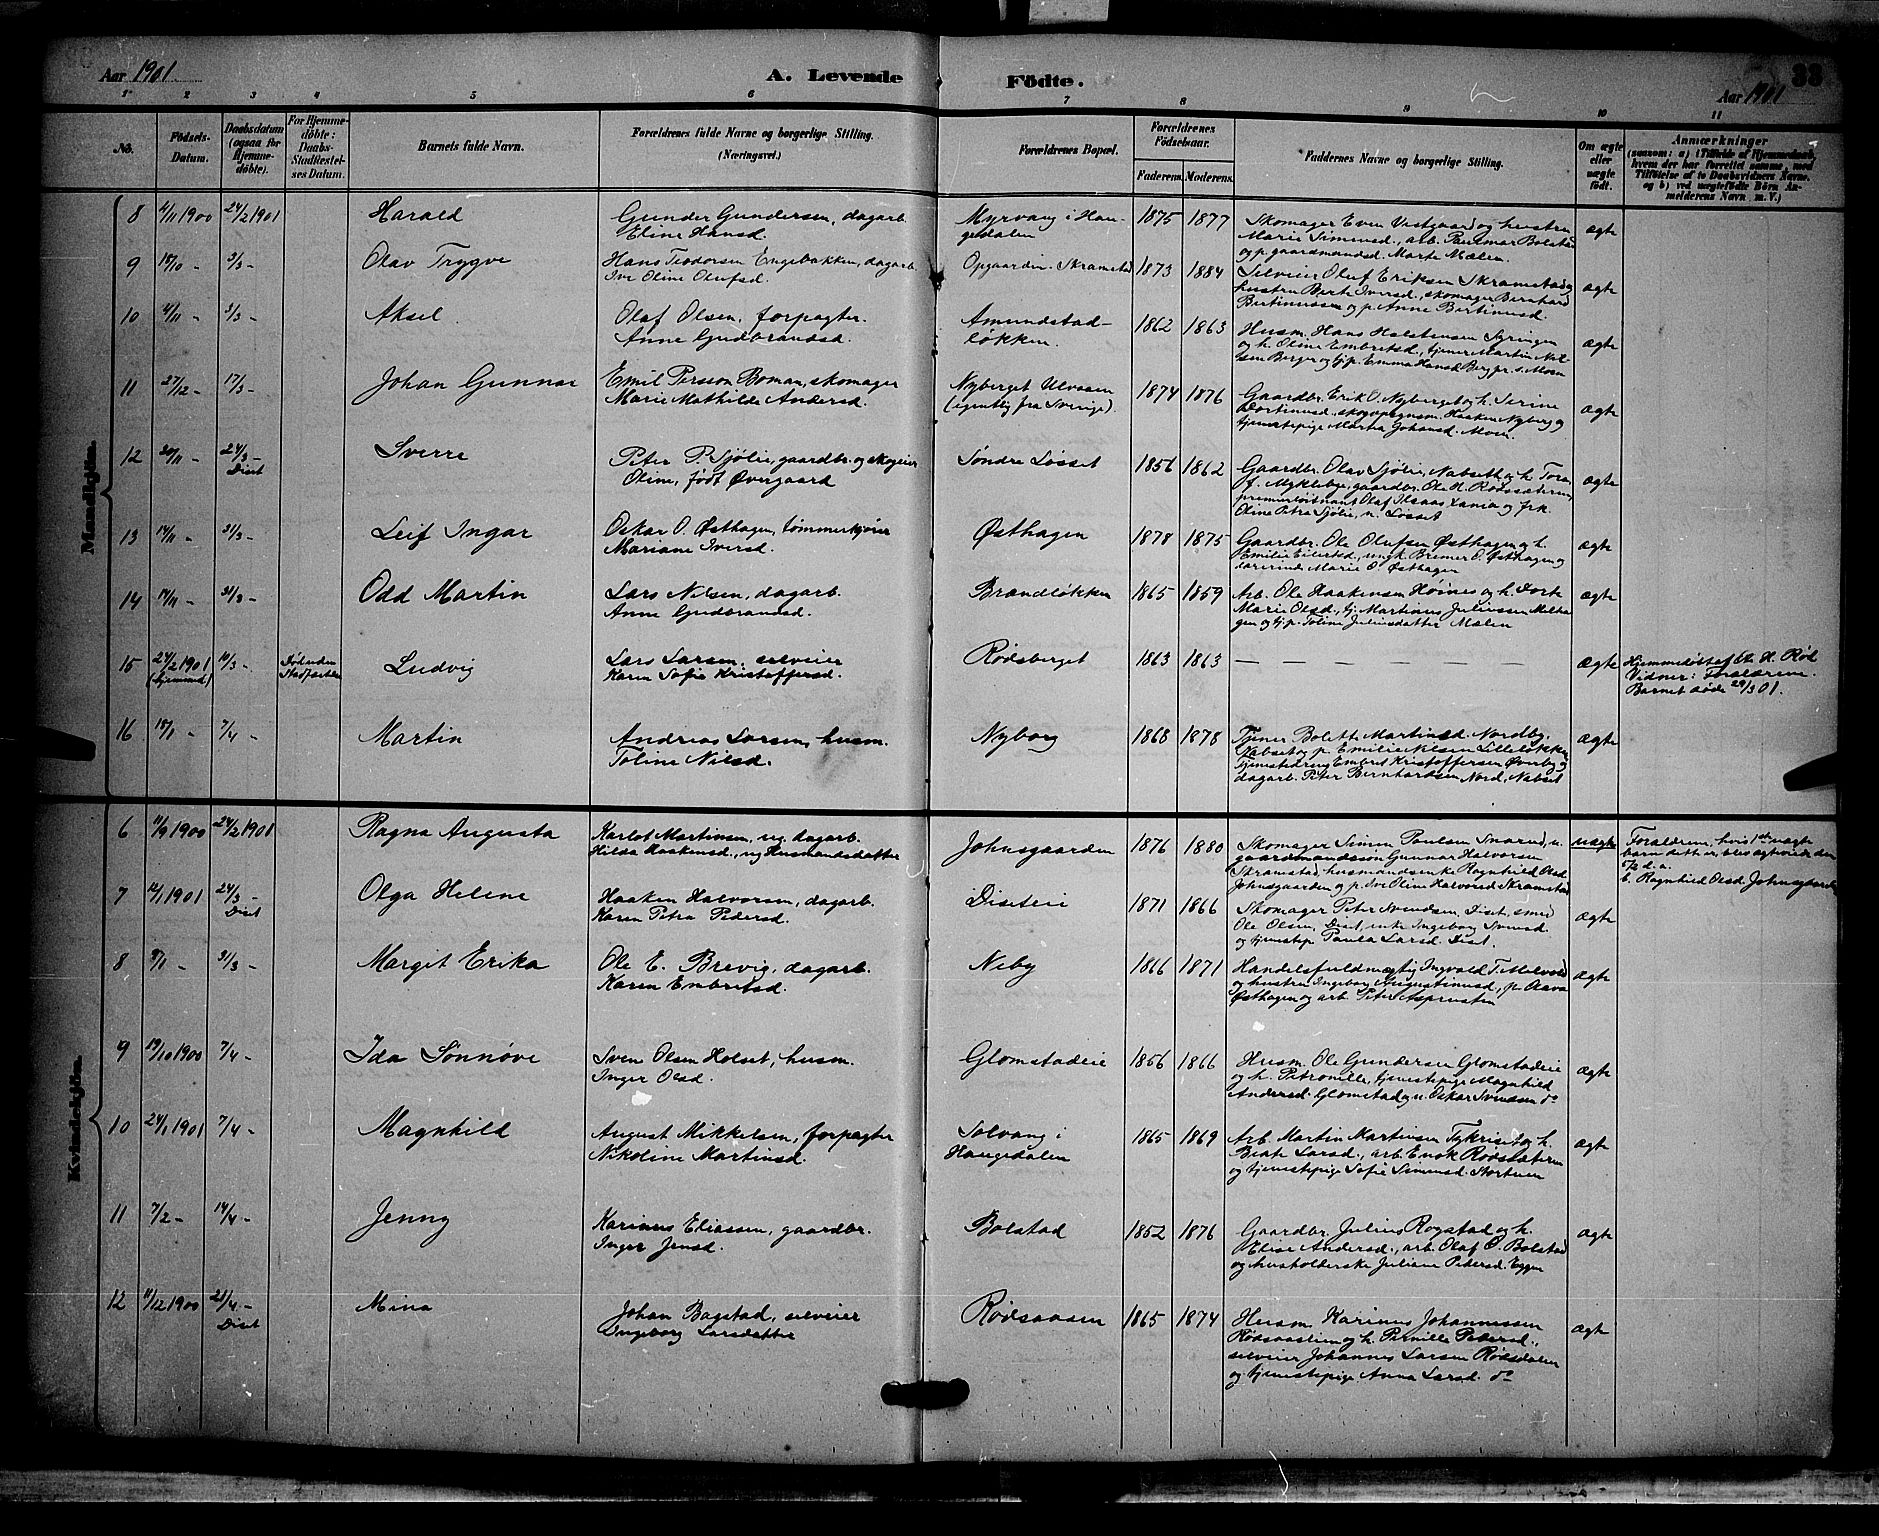 Aar 1901.
A. Levende Födte.
33
Aar 1901
1 2 3 4 5 6 7 8 9 10 11
No.
Födsels-Datum.
Daabsdatum (ogsaa for Hjemmedöbte).
For Hjemmedöbte: Daabs-Stadfæstelses Datum.
Barnets fulde Navn.
Forældrenes fulde Navne og borgerlige Stilling.
(Næringsvei.)
Forældrenes Bopæl.
Forældrenes Födselsaar.
Faderens. Moderens.
Faddernes Navne og borgerlige Stilling.
Om ægte eller uægte födt.
Anmærkninger
(saasom: a) i Tilfælde af Hjemmedaab, hvem der har forrettet samme, med Tilföielse af to Daabsvidners Navne. og b) ved uægtefödte Börn Anmelderens Navn m. V.)
Mandkjön.
8 4/11 1900 24/2 1901 Harald
Gunder Gundersen, dagarb.
Eline Hansd.
Myrvang i Haugedalen 1875 1877
Skomager Even Vestgaard og hustru
Marie Simensd., arb. Paulmar Bolstad
og p. gaardmandsd. Marte Mælen.
ægte
9 15/10 - 3/3 - Olav Trygve
Hans Teodorsen Engebakken, dagarb.
Ive Oline Olufsd.
Opgaarden Skramstad 1873 1884
Selveier Oluf Eriksen Skramstad og
hustru Berte Iversd., skomager Bernhard
Bertinussen og p. Anne Bertinusd.
ægte
10 4/11 - 3/3 - Aksel
Olaf Olsen, forpagter.
Anne Gudbrandsd.
Amundstadløkken. 1862 1863
Husm. Hans Halstensen Gyringen
og h. Oline Embretsd., tjener Martin Nilsen Berger og tj.p. Emma Hansd. Berg pr. s. Moen
ægte
11 27/12 - 17/3 - Johan Gunnar
Emil Persson Boman, skomager
Marie Mathilde Andersd.
Nyberget Ulvaaen
(egentlig fra Sverige). 1874 1876
Gaardbr. Erik O. Nyberget og h. Serine
Dortinusd., skogvogns. Haaken Nyberg og
tjenestepige Martha Johansd. Moen.
ægte
12 30/11 - 24/3 - Diset Sverre
Peter P. Sjölie, gaardbr. og skogeier
Oline, født Övergaard
Søndre Løsset 1856 1862
Gaardbr. Olav Sjölie, Nabset og h. Tora
f. Myklebye, gaardbr. Ole H. Rødssæteren,
premierløitnant Olaf Ilsaas Lamea og frk.
Oline Petra Sjölie, n. Løsset
ægte
13 14/11 - 31/3 - Leif Ingar
Oskar O. Østhagen, tømmerkjører
Mariane Iversd.
Østhagen 1878 1875
Gaardbr. Ole Olufsen Østhagen og h.
Emilie Eilertsd., ungk. Bremer O. Østhagen og
lærerinde Marie O. Østhagen
ægte
14 17/11 - 31/3 - Odd Martin
Lars Nilsen, dagarb.
Anne Gudbrandsd.
Brændløkken 1865 1859
Arb. Ole Haakensen Høines og h. Dorte
Marie Olsd., tj. Martinus Juliussen Melhagen og tj.p. Toline Juliusdatter Mælen
ægte
15 24/2 1901 (hjemmed.) 10/3 - Død uden Stadfæstelse Ludvig
Lars Larsen, selveier
Karen Sofie Kristoffersd.
Rødsberget 1863 1863 — — — — — — —
ægte
Hjemmedøbt af Ole H. Rød
Vidner: Forældrene.
Barnet døde 29/3 01.
16 15/1 - 7/4 - Martin
Andreas Larsen, husm.
Toline Nilsd.
Nyborg 1868 1878
Tjener Bolette Martinsd. Nordby,
Nabset og p. Emilie Nilsen Lilleløkken,
tjenestedreng Embret Kristoffersen Øverby og
dagarb. Peter Bernhardsen Nord, Nabset
ægte
Kvindekjön.
6 11/9 1900 24/2 1901 Ragna Augusta
Karlot Martinsen, ug. dagarb.
Hilda Haakensd., ug. Husmandsdatter
Johnsgaarden 1876 1880
Skomager Simen Paulsen Snarud, u.
gaardmandssøn Gunnar Halvorsen
Skramstad, husmandsenke Ragnhild Olsd.
Johnsgaarden og p. Ive Oline Halvorsd. Skramstad
uægte
Forældrene, hvis 1ste uægte
barn dette er, blev ægteviede den
d. a.
E. Ragnhild Olsd. Johnsgaarden
7 14/1 1901 24/3 - Diset Olga Helene
Haaken Halvorsen, dagarb.
Karen Petra Pedersd.
Diseteie 1871 1866
Skomager Peter Svendsen, Diset, smed
Ole Olsen, Diset, enke Ingeborg Svensd.
og tjenestep. Paula Larsd. Diset.
ægte
8 9/1 - 31/3 - Margit Erika
Ole E. Brevig, dagarb.
Karen Embretsd.
Neby 1866 1871
Handelsfuldmægtig Ingvald T. Melvold
og hustru Ingeborg Augustinusd., p. Olava
Østhagen og arb. Peter Aspeusten
ægte
9 19/10 1900 7/4 - Ida Sønnøve
Sven Olsen Holset, husm.
Inger Olsd.
Glomstadeie 1856 1866
Husm. Ole Gundersen Glomstadeie
og h. Petronille, tjenestepige Magnhild
Andersd. Glomstad og u. Oskar Svendsen do
ægte
10 24/1 1901 7/4 - Magnhild
August Mikkelsen, forpagter
Nikoline Martinsd.
Solvang i
Haugedalen 1865 1869
Arb. Martin Martinsen Tykriset og h.
Beate Larsd., arb. Enok Rødssæteren
og tjenestepige Sofie Simensd. Stortuen
ægte
11 7/2 - 14/4 - Jenny
Karinus Eliassen, gaardbr.
Inger Jensd.
Bolstad 1852 1876
Gaardbr. Julius Rogstad og h.
Elise Andersd., arb. Olaf O. Bolstad
og husholderske Juliane Pedersd. Eggen
ægte
12 11/12 1900 21/4 - Diset Mina
Johan Bagstad, selveier
Ingeborg Larsdatter
Rødsaasen 1865 1874
Husm. Karinus Johannessen
Rødsaaslien og h. Pernille Pedersd.,
selveier Johannes Larsen Rødsdalen
og tjenestepige Anna Larsd. do
ægte